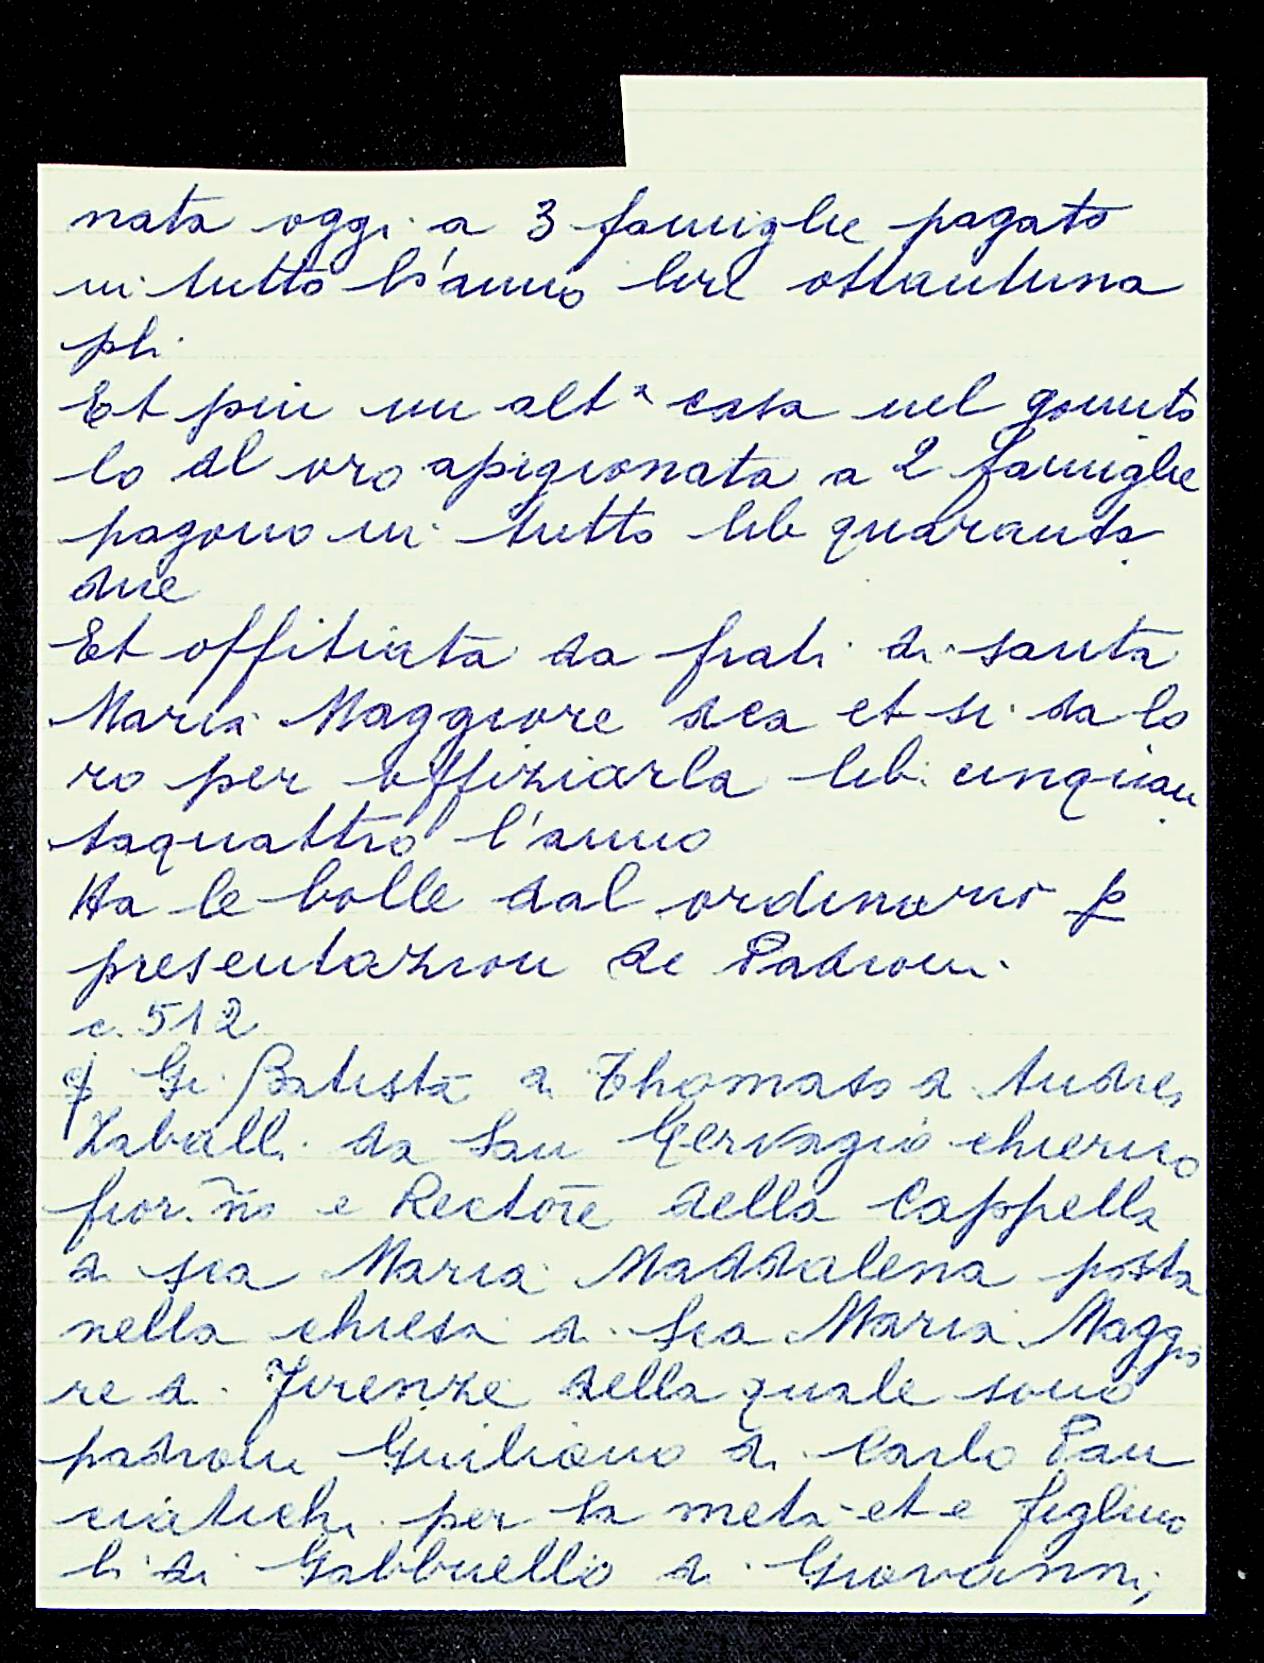 nata oggi a 3 famiglie pagato
in tutto l'anno lire ottantuna
pli
Et piu un alta casa nel gomito
lo al oro apigionata a 2 famiglie
pagono in tutto lib quaranta
due
Et offitiata da frati di santa
Maria Maggiore dca et si da lo
ro per offiziarla lib. cinquan
taquattro l'anno
Ha le bolle dal ordinario p
presentazion de Padroni
c. 512
Gi Batista di Thomaso di Andrea
Zaballi da San Gervagio chierico
fior.no e Rectore della Cappella
di sca Maria Maddalena posta
nella chiesa di Sca Maria Maggio
re di Firenze della quale sono
padroni Guiliano di Carlo Pan
ciatichi per la meta et e figliuo
li di Gabbriello di Giovanni,